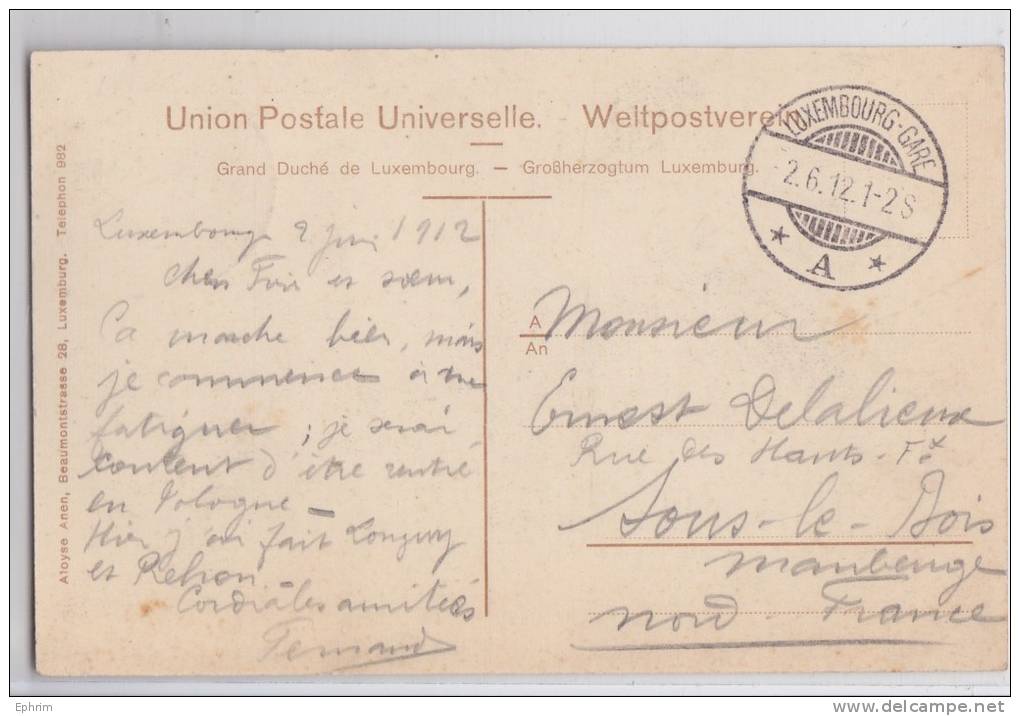 Union Postale Universelle. Weltpostverein
Grand Duché de Luxembourg. – Großherzogtum Luxemburg.
LUXEMBOURG-GARE
2.6.12.1-2S
* A *
Aloyse Anen, Beaumontstrasse 28, Luxemburg. Telephon 982
Luxembourg 2 juin 1912
Cher Frère et sœur,
Ca marche bien, mais
je commence à me
fatiguer ; je serai
content d'être rentré
en Pologne –
Hier j'ai fait Longwy
et Rehon
Cordiales amitiés
Fernand
A
An
Monsieur
Ernest Delalieux
Rue des Hauts-Fx
Sous-le-Bois
Maubeuge
Nord France
Ephrim
www.delcampe.net